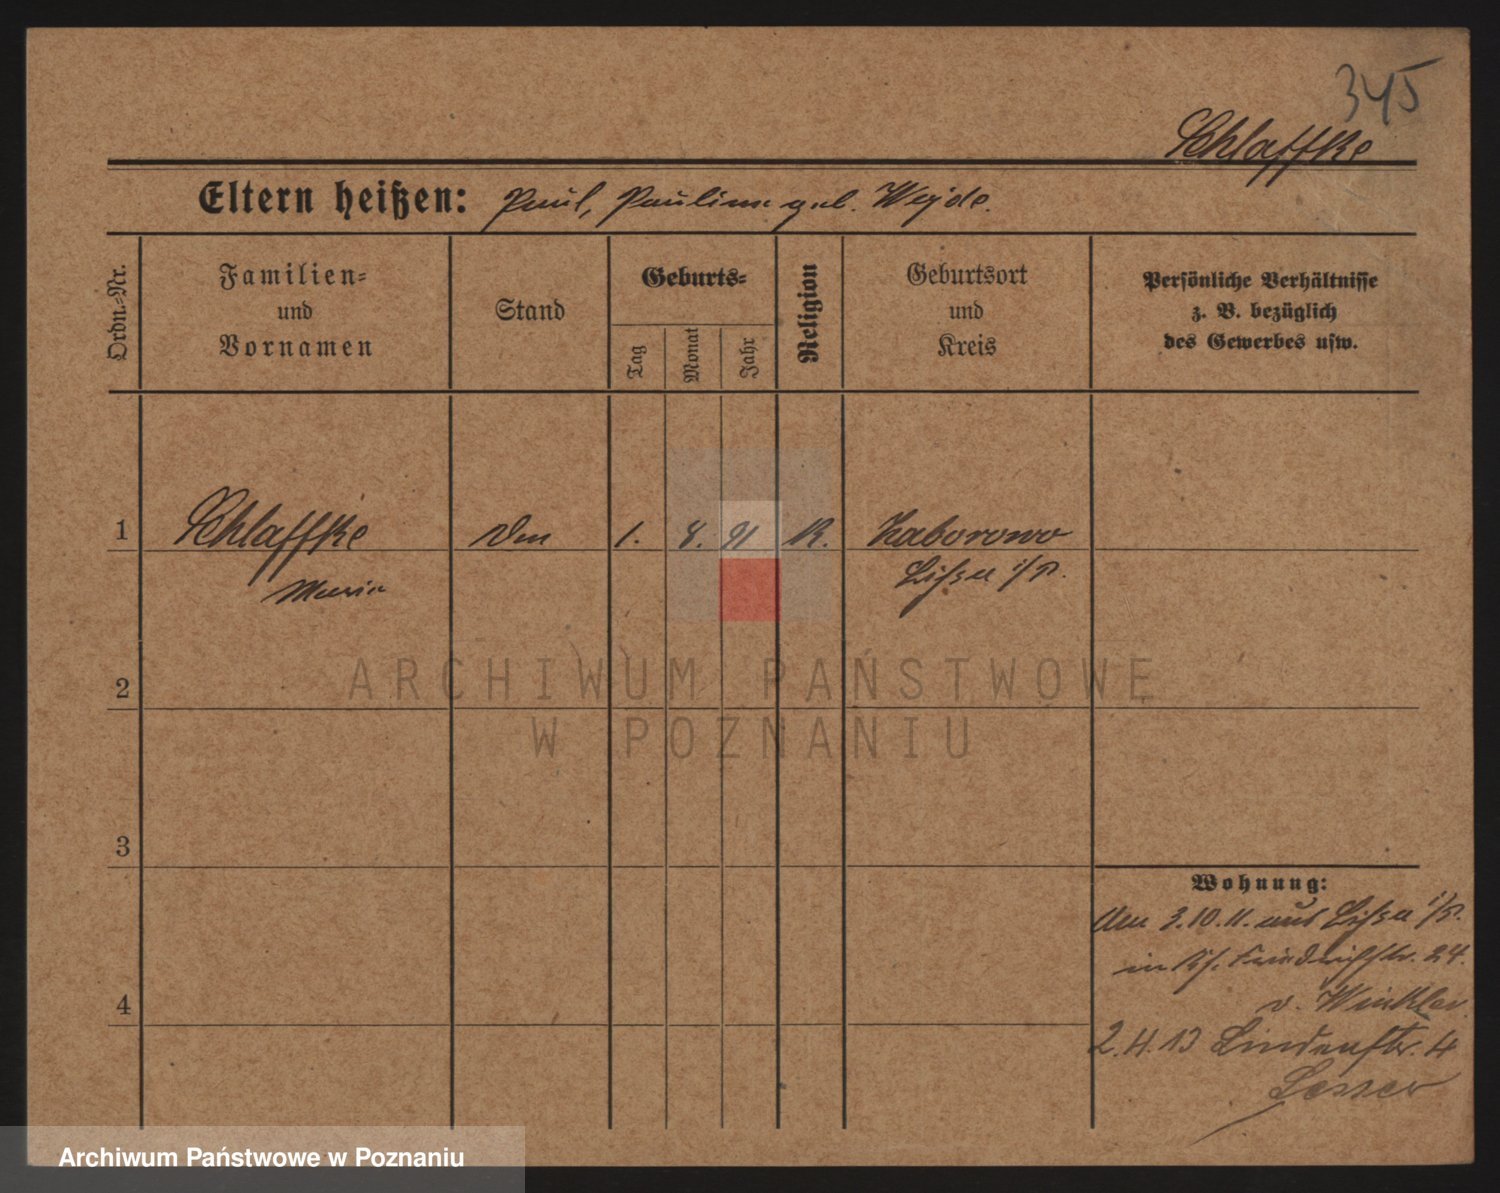 345
Schlaffke
Eltern heißen: Paul, Pauline geb. Wejde.
Ordn.-Nr.
Familien-
und
Vornamen
Stand
Geburts-
Tag
Monat
Jahr
Religion
Geburtsort
und
Kreis
Persönliche Verhältnisse
z. B. bezüglich
des Gewerbes usw.
1 Schlaffke 1. 8. 91 K. Zaborowo
Maria Lissa i/P.
2
ARCHIWUM PAŃSTWOWE
W POZNANIU
3
Wohnung:
3.10.11. aus Lissa i/P.
in Friedrichstr. 24.
v. Winkler
4
2.4.13 Lindenstr. 4
Lesser
Archiwum Państwowe w Poznaniu